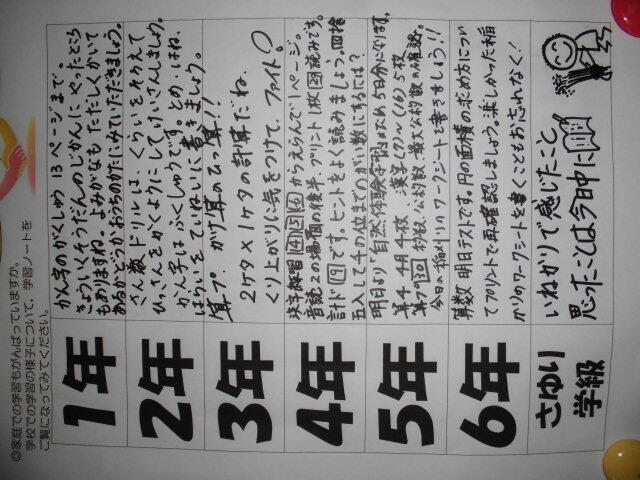 ◎家庭での学習もがんばっていますか。
学校での学習の様子について、学習ノートを
ご覧になってみてください。
1年
かん字のがくしゅう 13ページまで。
きょういくそうだんのじかんに やったところ
もありますね。よみがなもただしくかいて
あるかどうかおうちのかたにみていただきましょう。
2年
さん数ドリルは、くらいをそろえて
ひっさんをかくようにしてけいさんしましょう。
かん字はふくしゅうです。とめ、はね、
はらいをていねいに書きましょう。
3年
算プ. かけ算のひっ算!!
2ケタ×1ケタの計算だね。
くり上がりに気をつけて、ファイト○
4年
漢字練習 14 15 16 からえらんで1ページ。
音読この場個の後半。プリント1枚 国読みです。
計ド 19 です。ヒントをよく読みましょう。四捨
五入して千の位までのがい数にするには?
5年
明日より「自然体験学習」のため5日分になります。
算千 4月千枚 漢字(7)〜(16)5枚
算プ 20 約数、公約数、最大公約数の確認。
今日の稲刈りのワークシートを書きましょう!!
6年
算数 明日テストです。円の面積の求め方につい
てプリントで再確認しましょう。楽しかった稲
かりのワークシートを書くこともお忘れなく!
さゆり
学級
いねかりで感じたこと
思ったことは今日中に